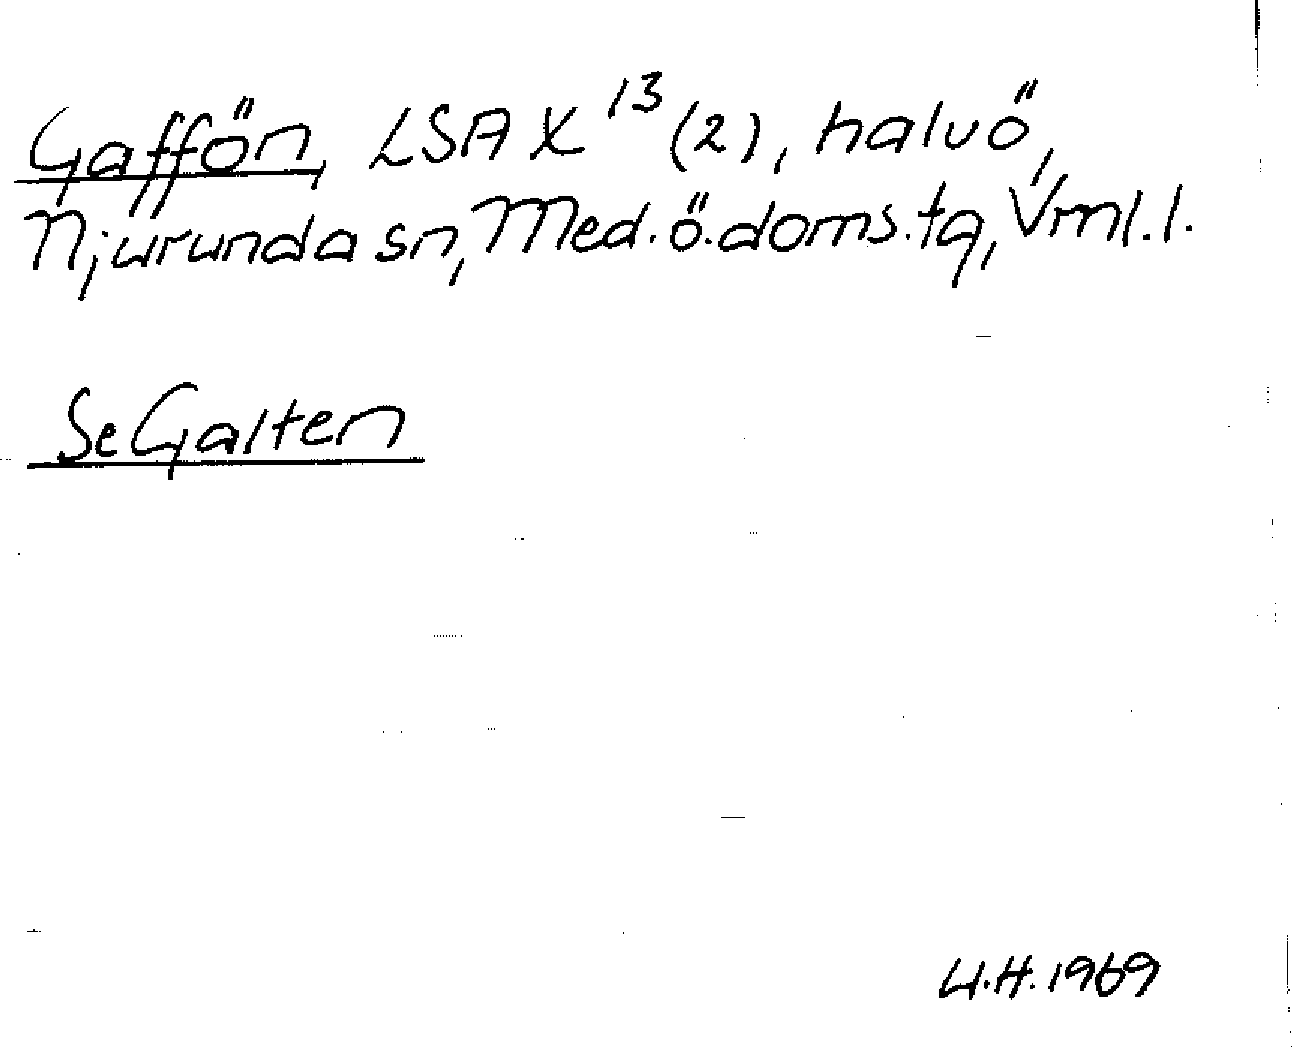 Gaffön, LSA X 13 (2), halvö,
Njurunda sn, Med. ö. doms. tg, Vml. l.
Se Galten
U.H. 1969